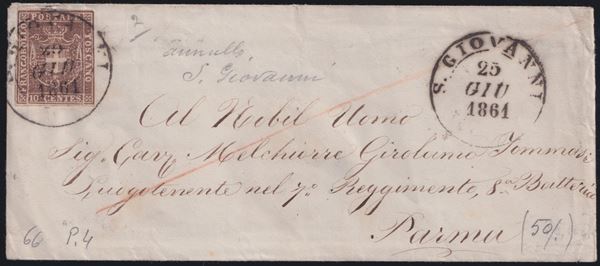 FRANCOBOLLO POSTALE TOSCANO
10 CENTES
25
GIU
1861
annullo
S. Giovanni
S. GIOVANNI
25
GIU
1861
Al Nobil Uomo
Sig. Cav. Melchiorre Girolamo Tommasi
Luogotenente nel 7° Reggimento, 8a Batteria
Parma
(50%)
66 P.4